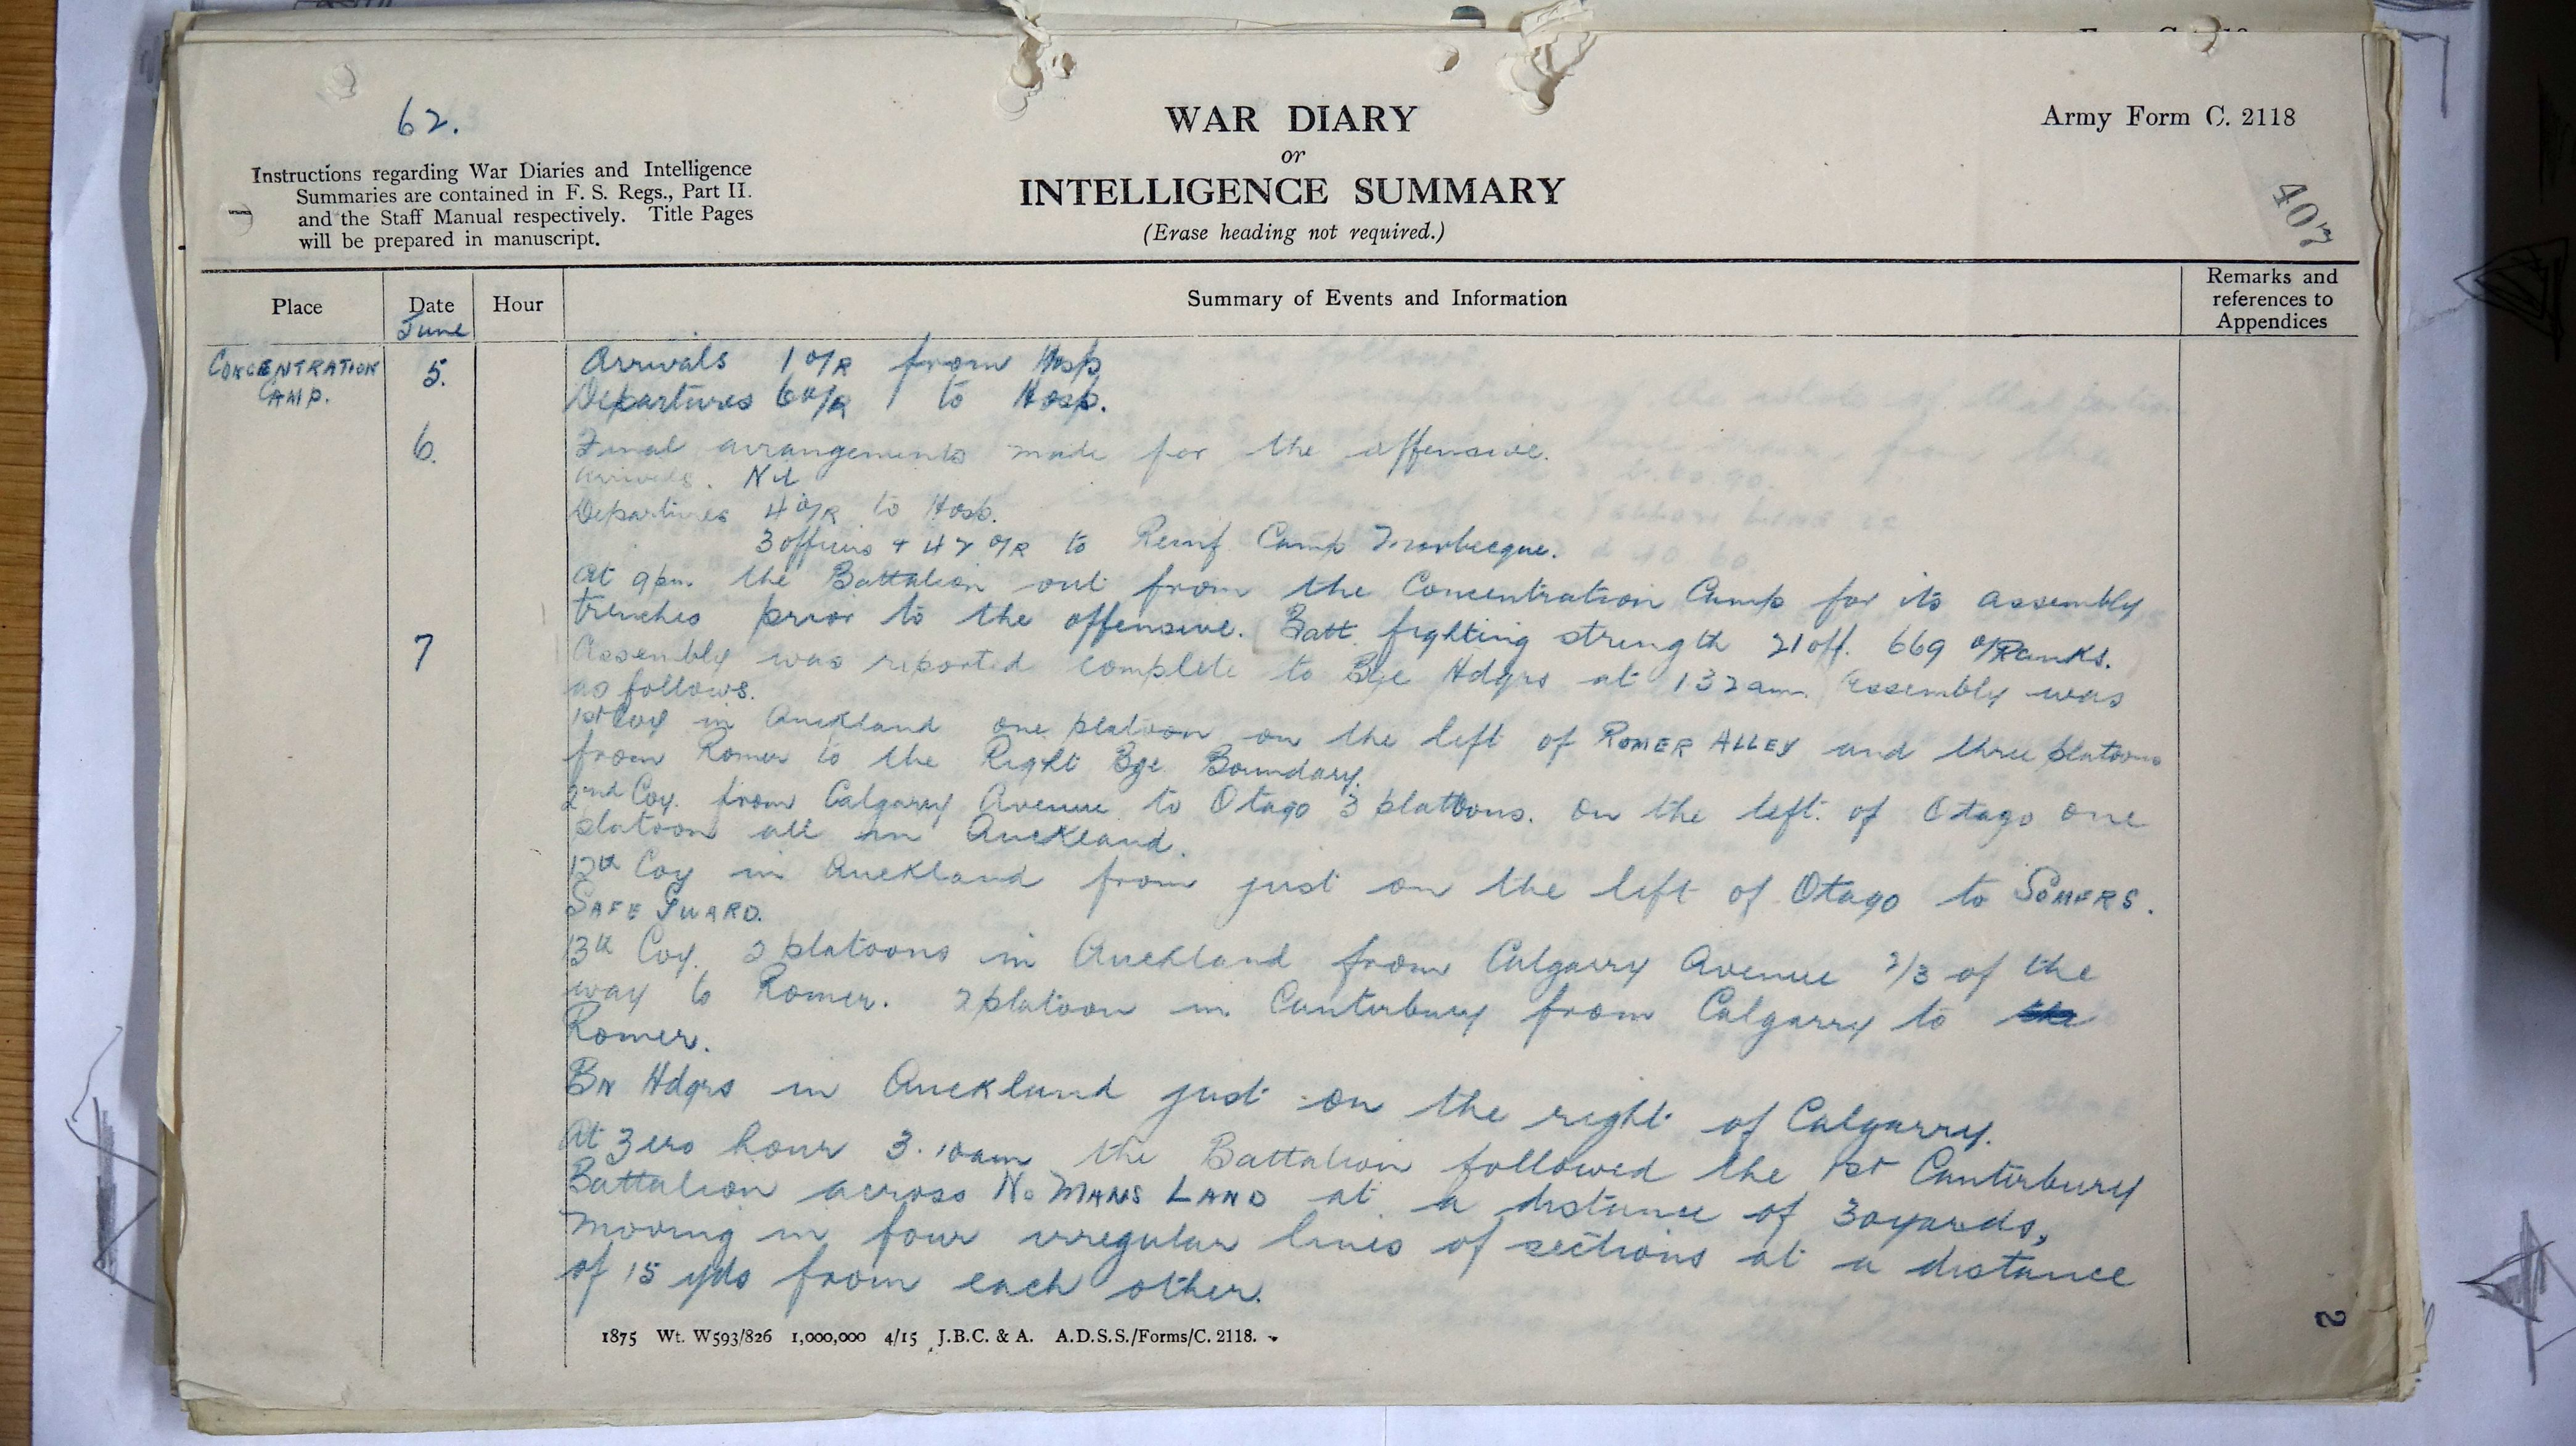 62.
WAR DIARY
or
INTELLIGENCE SUMMARY
(Erase heading not required.)
Army Form C. 2118
407
Instructions regarding War Diaries and Intelligence
Summaries are contained in F. S. Regs., Part II.
and the Staff Manual respectively. Title Pages
will be prepared in manuscript.
Place
Date
June
Hour
Summary of Events and Information
Remarks and
references to
Appendices
CONCENTRATION
CAMP.
5.
Arrivals 1 O/R from Hosp
Departures 6 O/R to Hosp.
6.
Final arrangements made for the offensive.
Arrivals. Nil
Departures 4 O/R to Hosp.
3 officers + 47 O/R to Reinf Camp Morbecque.
At 9pm. the Battalion out from the Concentration Camp for its assembly
trenches prior to the offensive. Batt. fighting strength 21 off. 669 O/Ranks.
7
Assembly was reported complete to Bge Hdqrs at 1 32 am. Assembly was
as follows.
1st Coy in Auckland one platoon on the left of ROMER ALLEY and three platoons
from Romer to the Right Bge Boundary.
2nd Coy. from Calgarry Avenue to Otago 3 platoons. on the left. of Otago one
platoon all in Auckland.
12th Coy in Auckland from just on the left of Otago to SOMERS.
SAFE GUARD.
13th Coy. 2 platoons in Auckland from Calgarry Avenue 2/3 of the
way to Romer. 2 platoon in Canterbury from Calgarry to the
Romer.
BN Hdqrs in Auckland just on the right of Calgarry.
At Zero hour 3.10am the Battalion followed the 1st Canterbury
Battalion across No MANS LAND at a distance of 30yards,
moving in four irregular lines of sections at a distance
of 15 yds from each other.
1875 Wt. W593/826 1,000,000 4/15 J.B.C. & A. A.D.S.S./Forms/C. 2118.
2